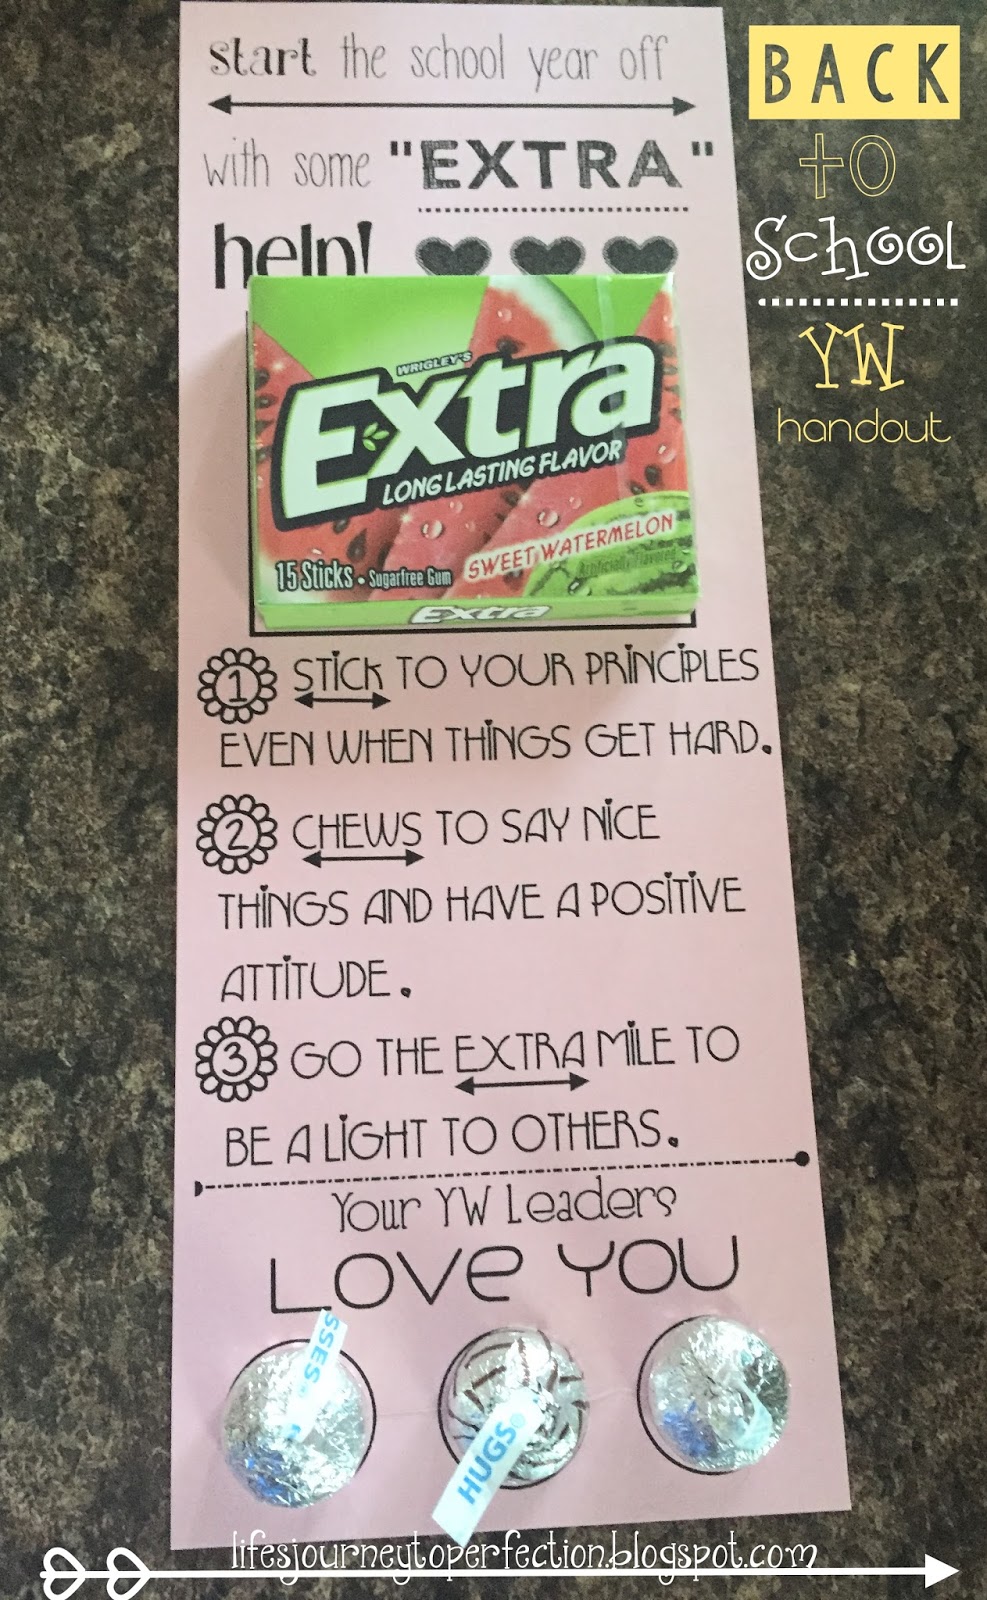 start the school year off
with some "EXTRA"
help!
WRIGLEY'S
Extra
LONG LASTING FLAVOR
SWEET WATERMELON
Artificially Flavored
15 Sticks • Sugarfree Gum
Extra
1 STICK TO YOUR PRINCIPLES
EVEN WHEN THINGS GET HARD.
2 CHEWS TO SAY NICE
THINGS AND HAVE A POSITIVE
ATTITUDE.
3 GO THE EXTRA MILE TO
BE A LIGHT TO OTHERS.
Your YW Leaders
LOVE YOU
SSES®
HUGS®
BACK
to
School
YW
handout
lifesjourneytoperfection.blogspot.com